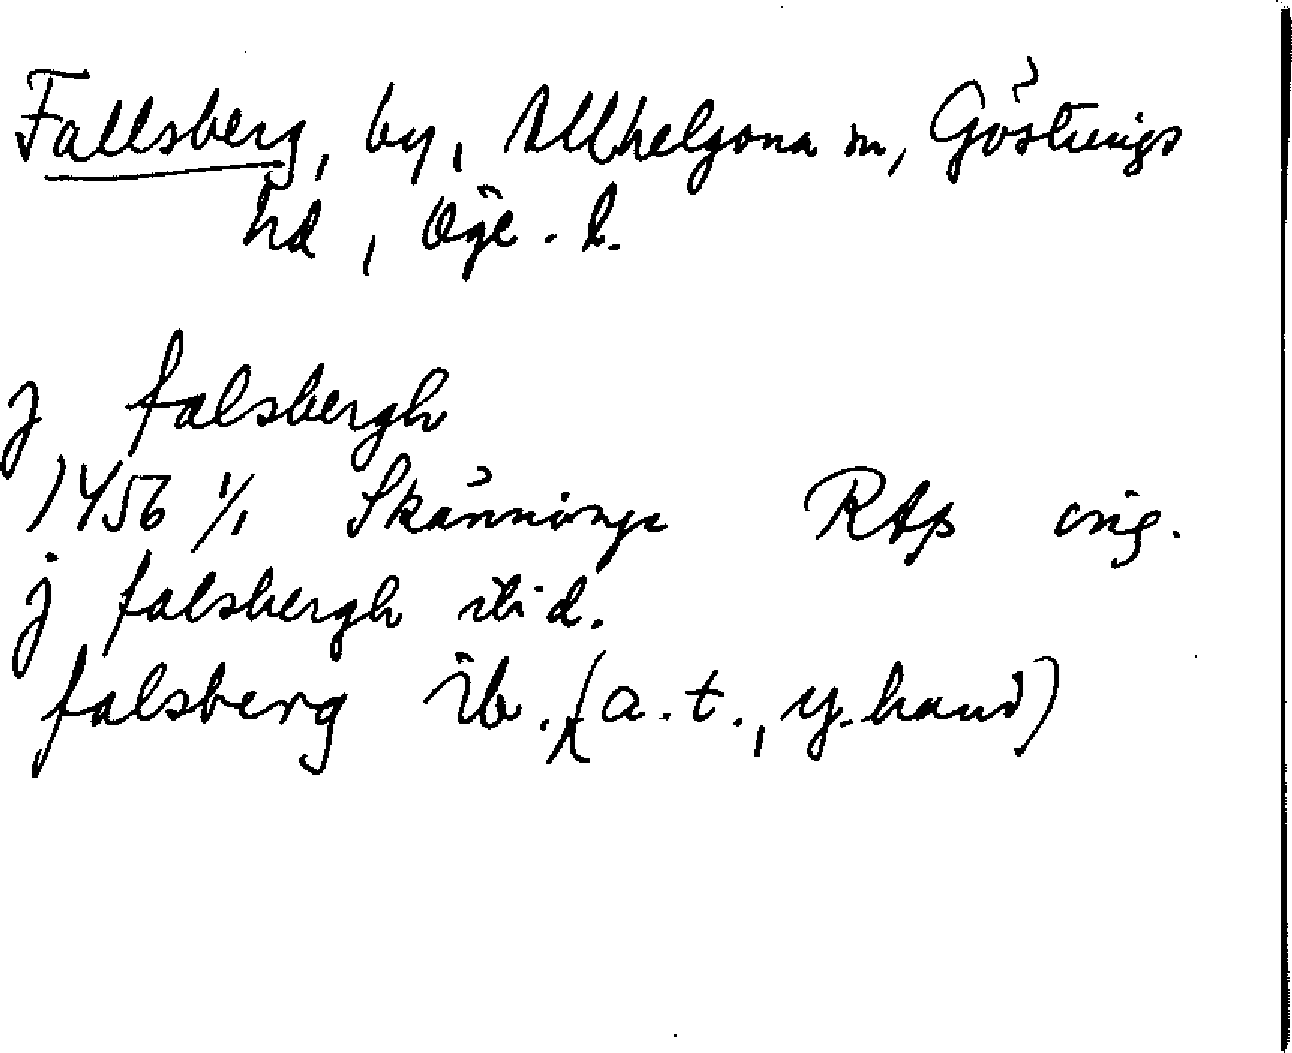 Fallsberg, by, Allhelgona sn, Göstrings
hd, Ög. l.
j falsbergh
1456 1/1 Skänninge RAp orig.
j falsbergh ibid.
falsberg ib. (a. t., y. hand)